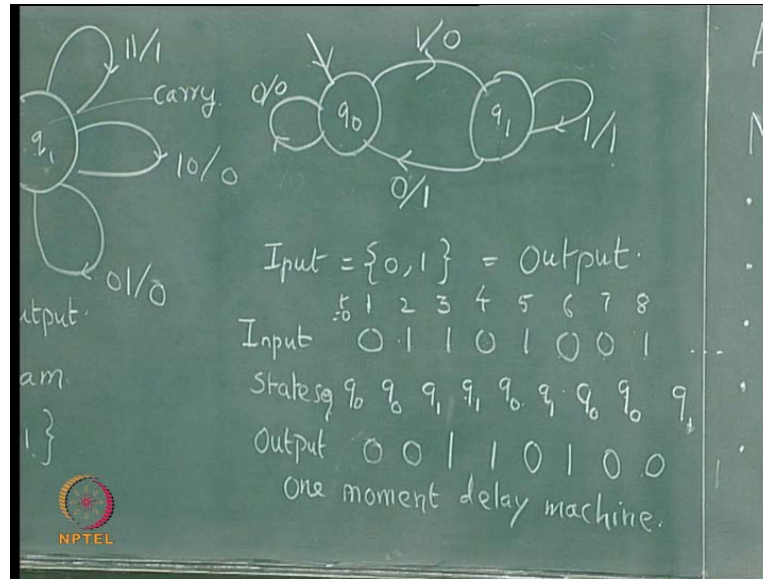 11/1
carry
q1
10/0
01/0
utput.
am.
1.}
0/0
1/0
q0
q1
1/1
0/1
Iput = {0,1} = Output.
t=0 1 2 3 4 5 6 7 8
Input 0 1 1 0 1 0 0 1 ...
State seq q0 q0 q1 q1 q0 q1 q0 q0 q1
Output 0 0 1 1 0 1 0 0
one moment delay machine.
NPTEL